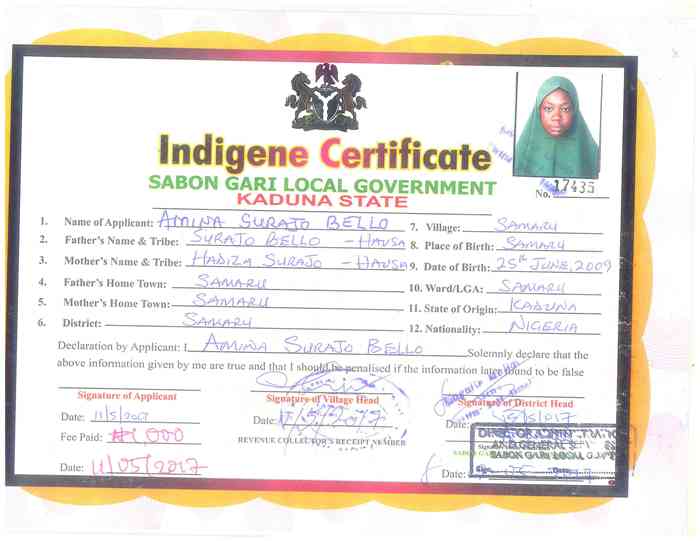 Indigene Certificate
SABON GARI LOCAL GOVERNMENT
KADUNA STATE
No. 17435
1. Name of Applicant: AMINA SURAJO BELLO
2. Father's Name & Tribe: SURAJO BELLO - HAUSA
3. Mother's Name & Tribe: HADIZA SURAJO - HAUSA
4. Father's Home Town: SAMARU
5. Mother's Home Town: SAMARU
6. District: SAMARU
7. Village: SAMARU
8. Place of Birth: SAMARU
9. Date of Birth: 25th JUNE, 2009
10. Ward/LGA: SAMARU
11. State of Origin: KADUNA
12. Nationality: NIGERIA
Declaration by Applicant: I AMINA SURAJO BELLO Solemnly declare that the
above information given by me are true and that I should be penalised if the information later found to be false
Signature of Applicant
Date: 11/5/2017
Fee Paid: ₦1000
Date: 11/05/2017
Signature of Village Head
Date:
REVENUE COLLECTOR'S RECEIPT NUMBER
Signature of District Head
Date:
SABON GARI LOCAL
Date: